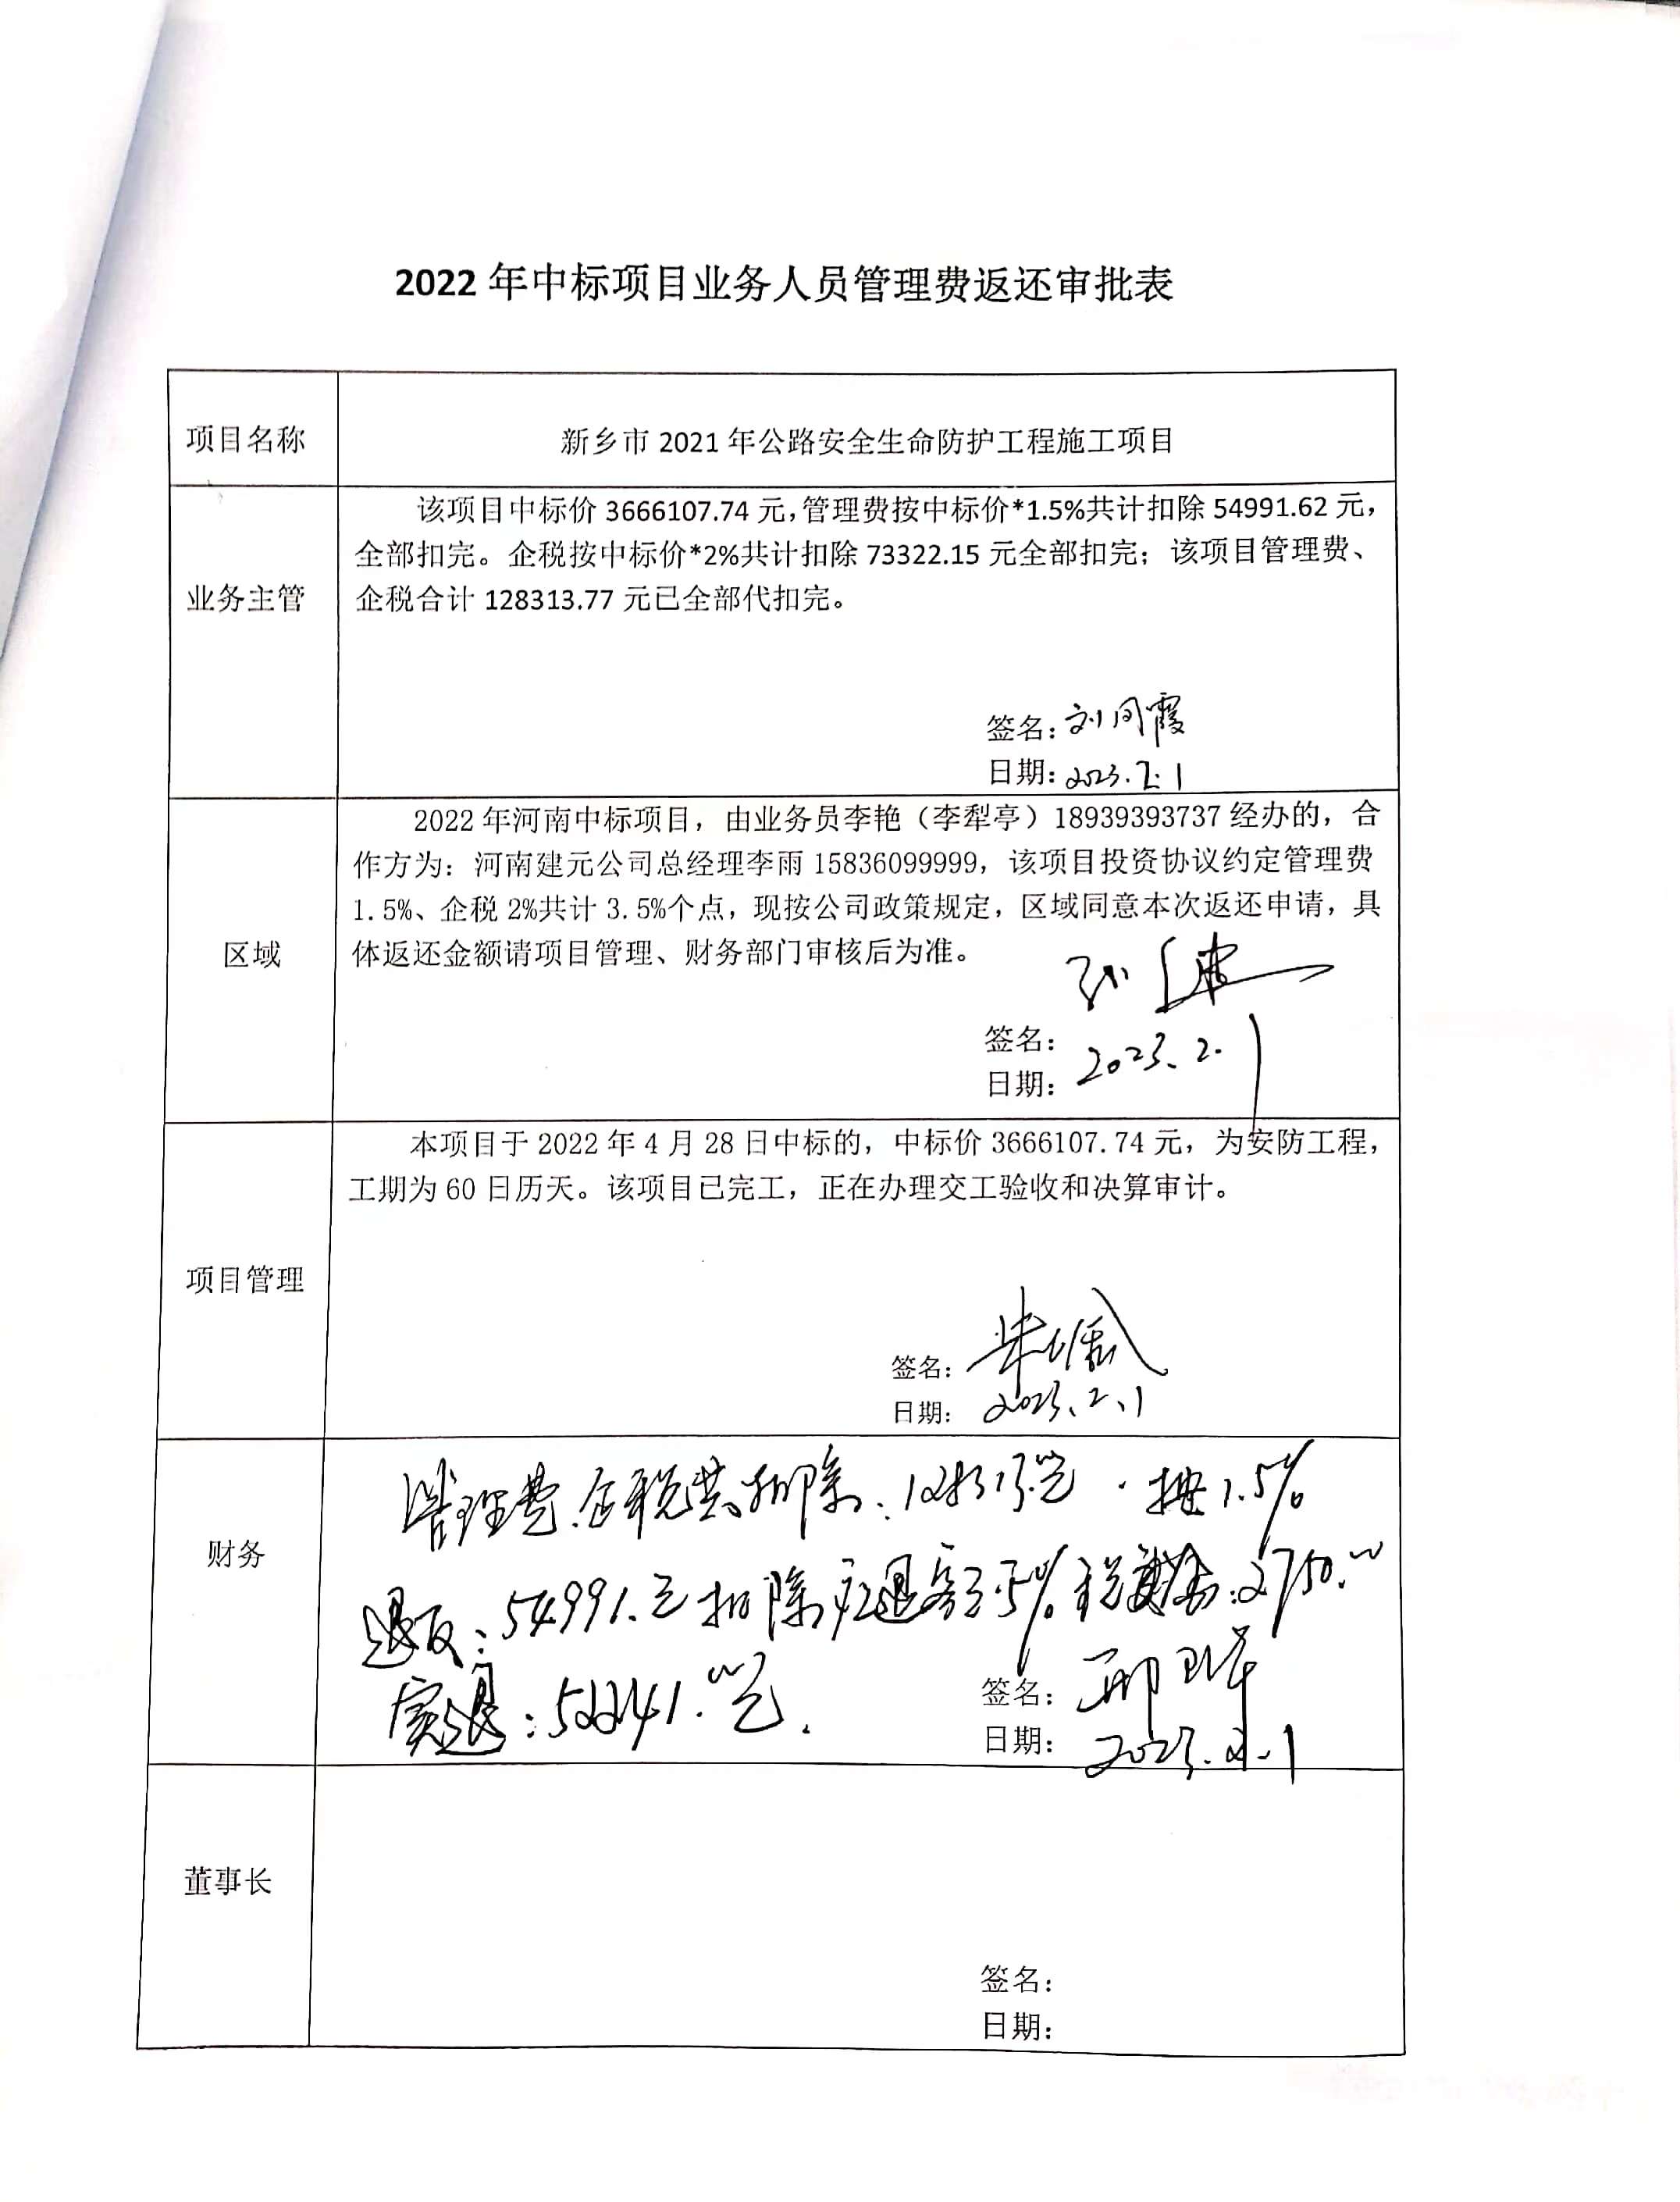 2022年中标项目业务人员管理费返还审批表
项目名称
新乡市2021年公路安全生命防护工程施工项目
业务主管
该项目中标价3666107.74元,管理费按中标价*1.5%共计扣除54991.62元,
全部扣完。企税按中标价*2%共计扣除73322.15元全部扣完；该项目管理费、
企税合计128313.77元已全部代扣完。
签名：刘同霞
日期：2023.2.1
区域
2022年河南中标项目，由业务员李艳（李犁亭）18939393737经办的，合
作方为：河南建元公司总经理李雨15836099999，该项目投资协议约定管理费
1.5%、企税2%共计3.5%个点，现按公司政策规定，区域同意本次返还申请，具
体返还金额请项目管理、财务部门审核后为准。
签名：
日期：2023.2.1
项目管理
本项目于2022年4月28日中标的，中标价3666107.74元，为安防工程，
工期为60日历天。该项目已完工，正在办理交工验收和决算审计。
签名：
日期：2023.2.1
财务
管理费.企税共扣除:128313.元.按1.5%
退返:54991.元扣除应退额5%税:2750.00
实退:52241.00元.
签名：
日期：2023.2.1
董事长
签名：
日期：